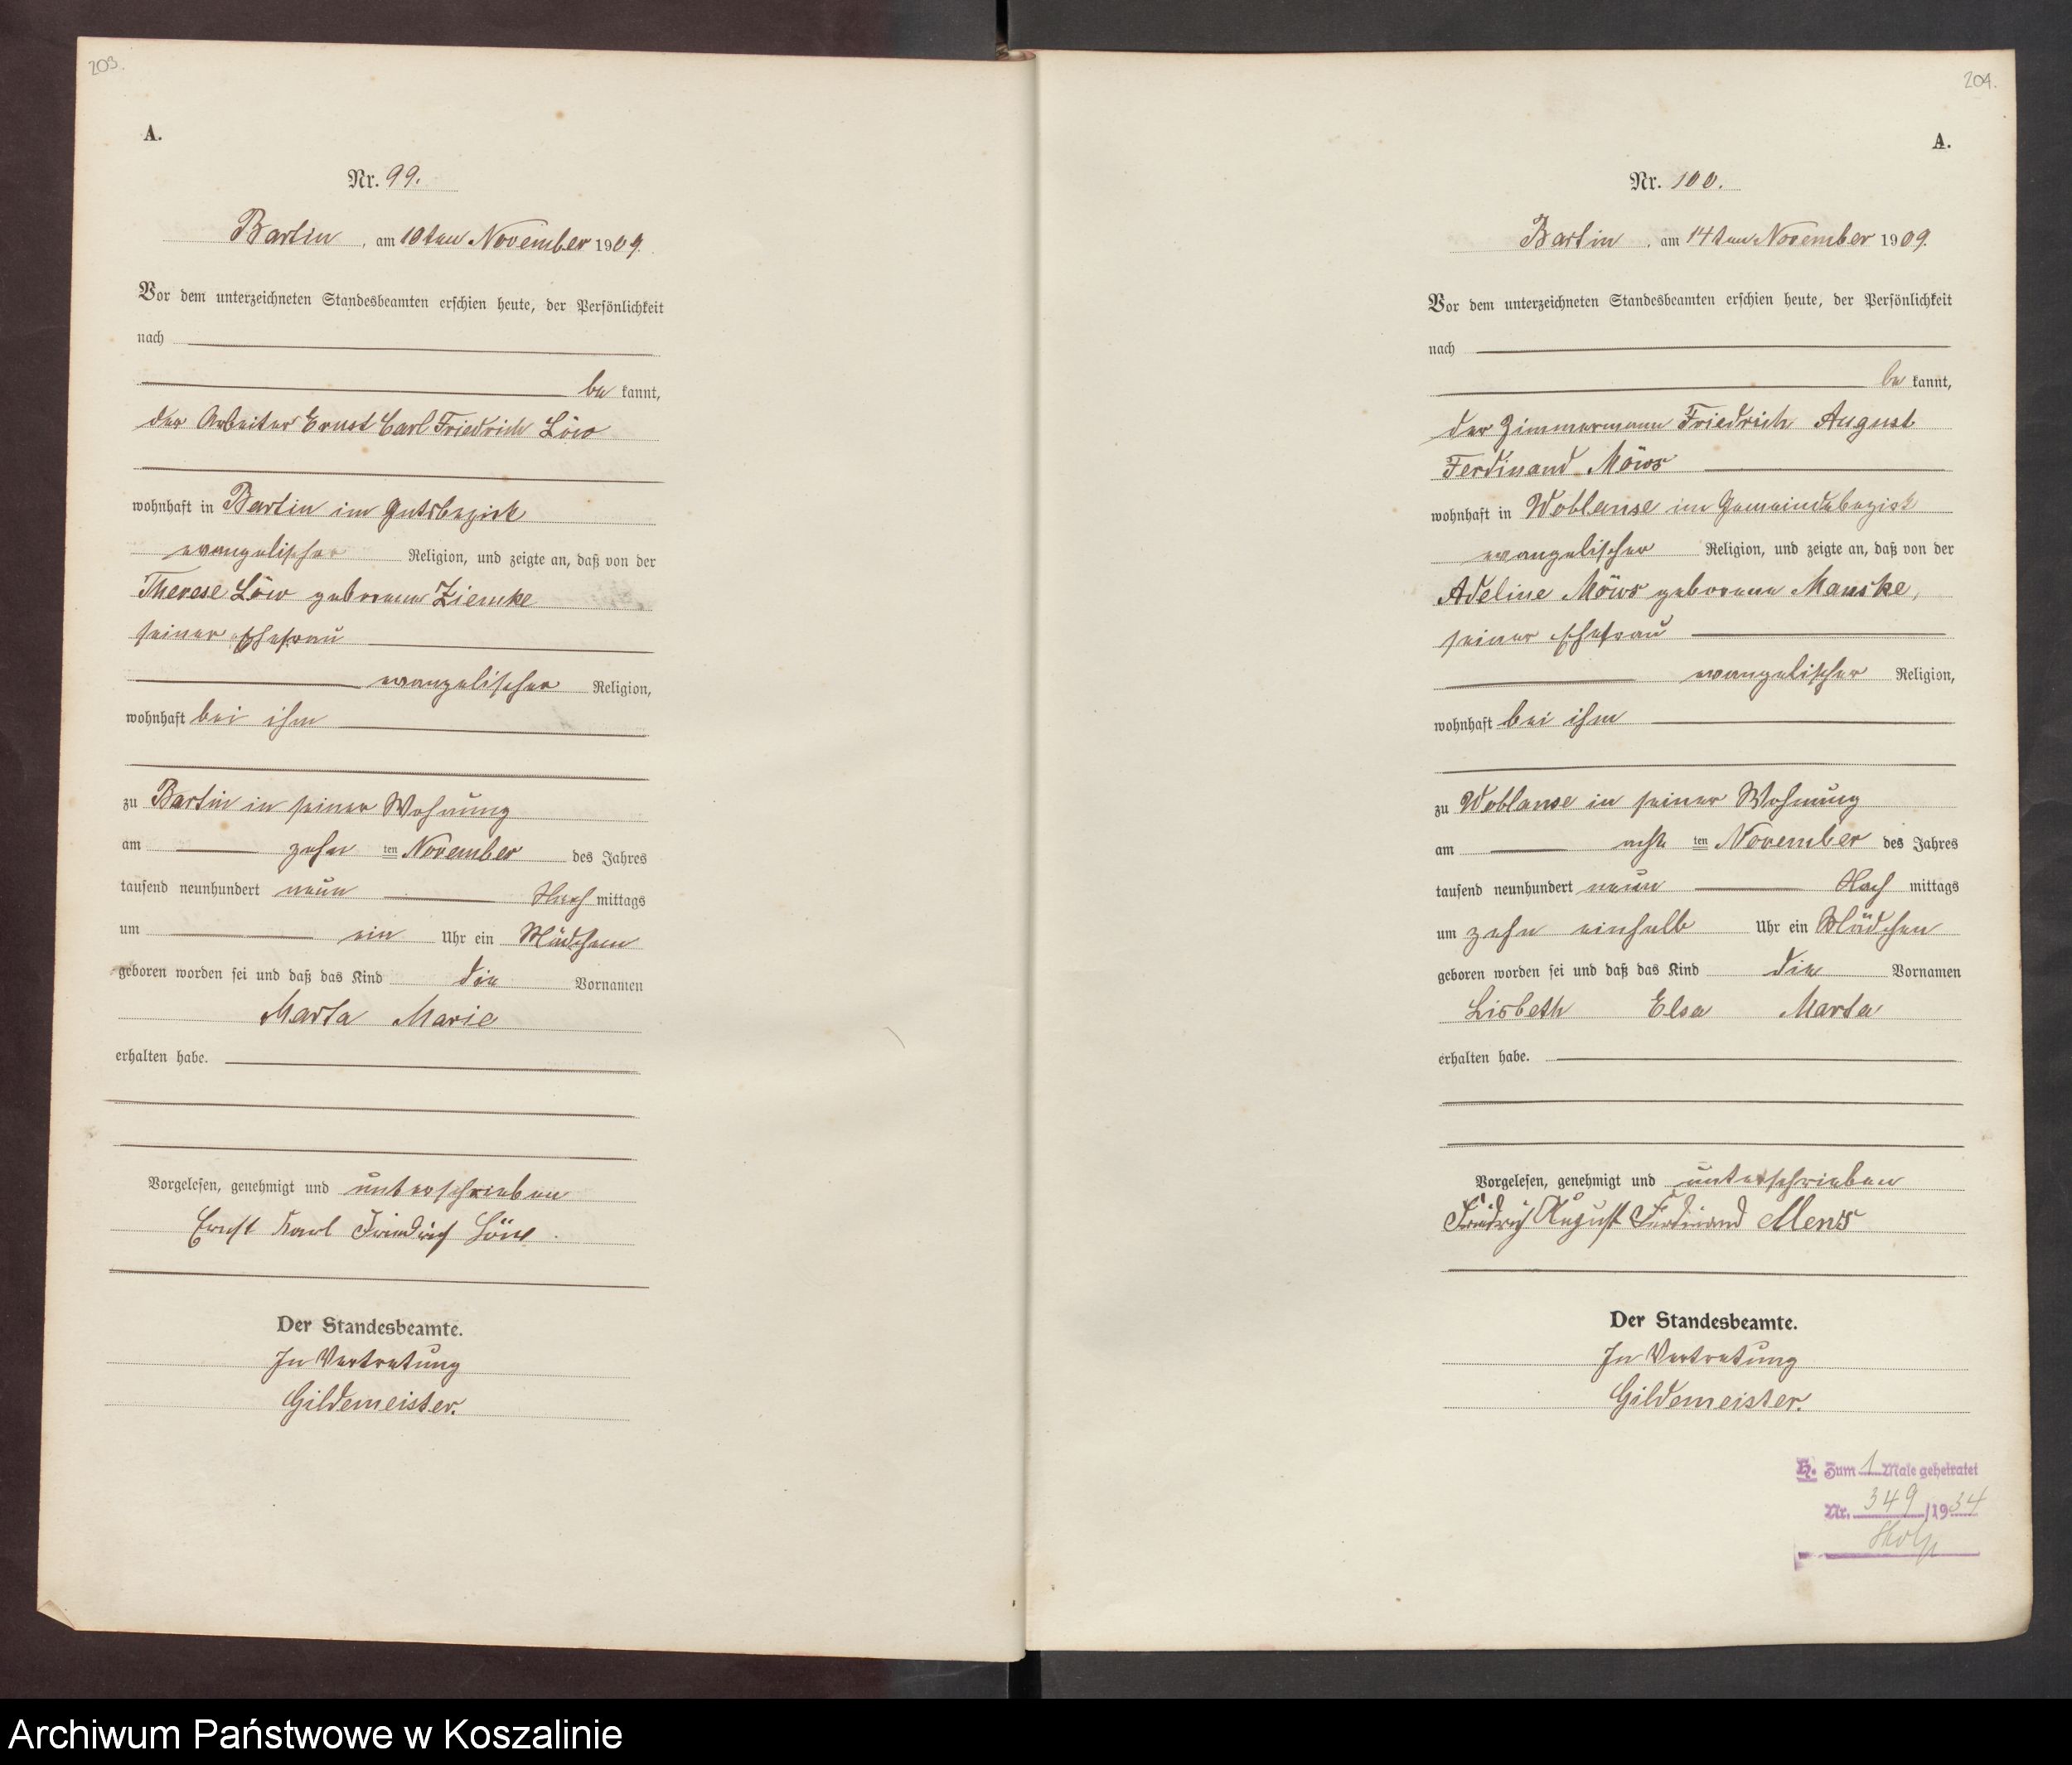 203.
A.
Nr. 99.
Bartin, am 10ten November 1909.
Vor dem unterzeichneten Standesbeamten erschien heute, der Persönlichkeit
nach
be kannt,
der Arbeiter Ernst Carl Friedrich Löw
wohnhaft in Bartin im Gutsbezirk
evangelischer Religion, und zeigte an, daß von der
Therese Löw geborene Ziemke
seiner Ehefrau
evangelischer Religion,
wohnhaft bei ihm
zu Bartin in seiner Wohnung
am zehn ten November des Jahres
tausend neunhundert neun Nach mittags
um ein Uhr ein Mädchen
geboren worden sei und daß das Kind die Vornamen
Marta Marie
erhalten habe.
Vorgelesen, genehmigt und unterschrieben
Ernst Karl Friedrich Löw.
Der Standesbeamte.
In Vertretung
Gildemeister.
204.
A.
Nr. 100.
Bartin, am 14ten November 1909.
Vor dem unterzeichneten Standesbeamten erschien heute, der Persönlichkeit
nach
be kannt,
der Zimmermann Friedrich August
Ferdinand Möws
wohnhaft in Woblanse im Gemeindebezirk
evangelischer Religion, und zeigte an, daß von der
Adeline Möws geborene Manske,
seiner Ehefrau
evangelischer Religion,
wohnhaft bei ihm
zu Woblanse in seiner Wohnung
am acht ten November des Jahres
tausend neunhundert neun Nach mittags
um zehn einhalb Uhr ein Mädchen
geboren worden sei und daß das Kind die Vornamen
Lisbeth Elsa Marta
erhalten habe.
Vorgelesen, genehmigt und unterschrieben
Friedrich August Ferdinand Mews
Der Standesbeamte.
In Vertretung
Gildemeister.
H. Zum 1 Male geheiratet
Nr. 349/1934
Stolp
Archiwum Państwowe w Koszalinie